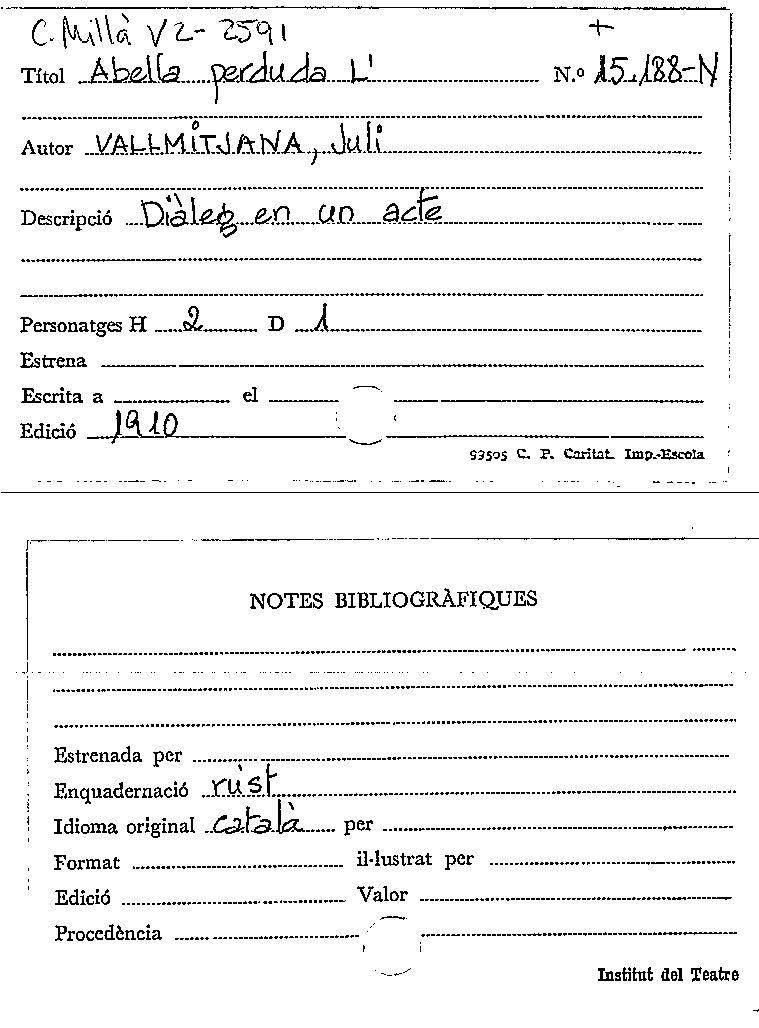 C. Millà V2-2591 +
Títol Abella perduda L' N.º 15.188-N
Autor VALLMITJANA, Juli
Descripció Diàleg en un acte
Personatges H 2 D 1
Estrena
Escrita a el
Edició 1910
93505 C. P. Caritat. Imp.-Escola
NOTES BIBLIOGRÀFIQUES
Estrenada per
Enquadernació rúst
Idioma original català per
Format il·lustrat per
Edició Valor
Procedència
Institut del Teatre